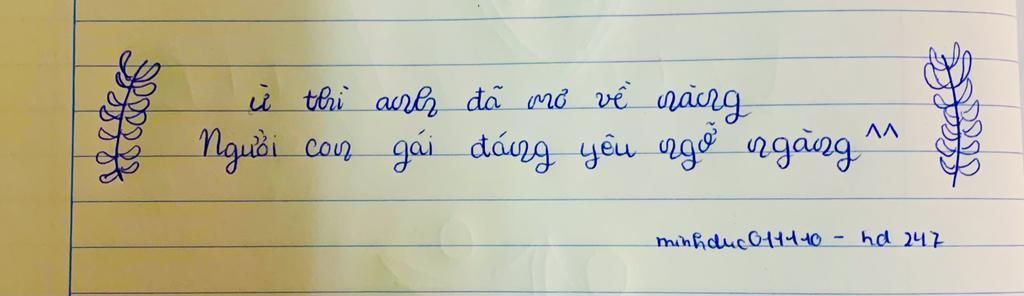 ừ thì anh đã mơ về nàng
Người con gái đáng yêu ngỡ ngàng ^^
minhduc011110 - hd 247